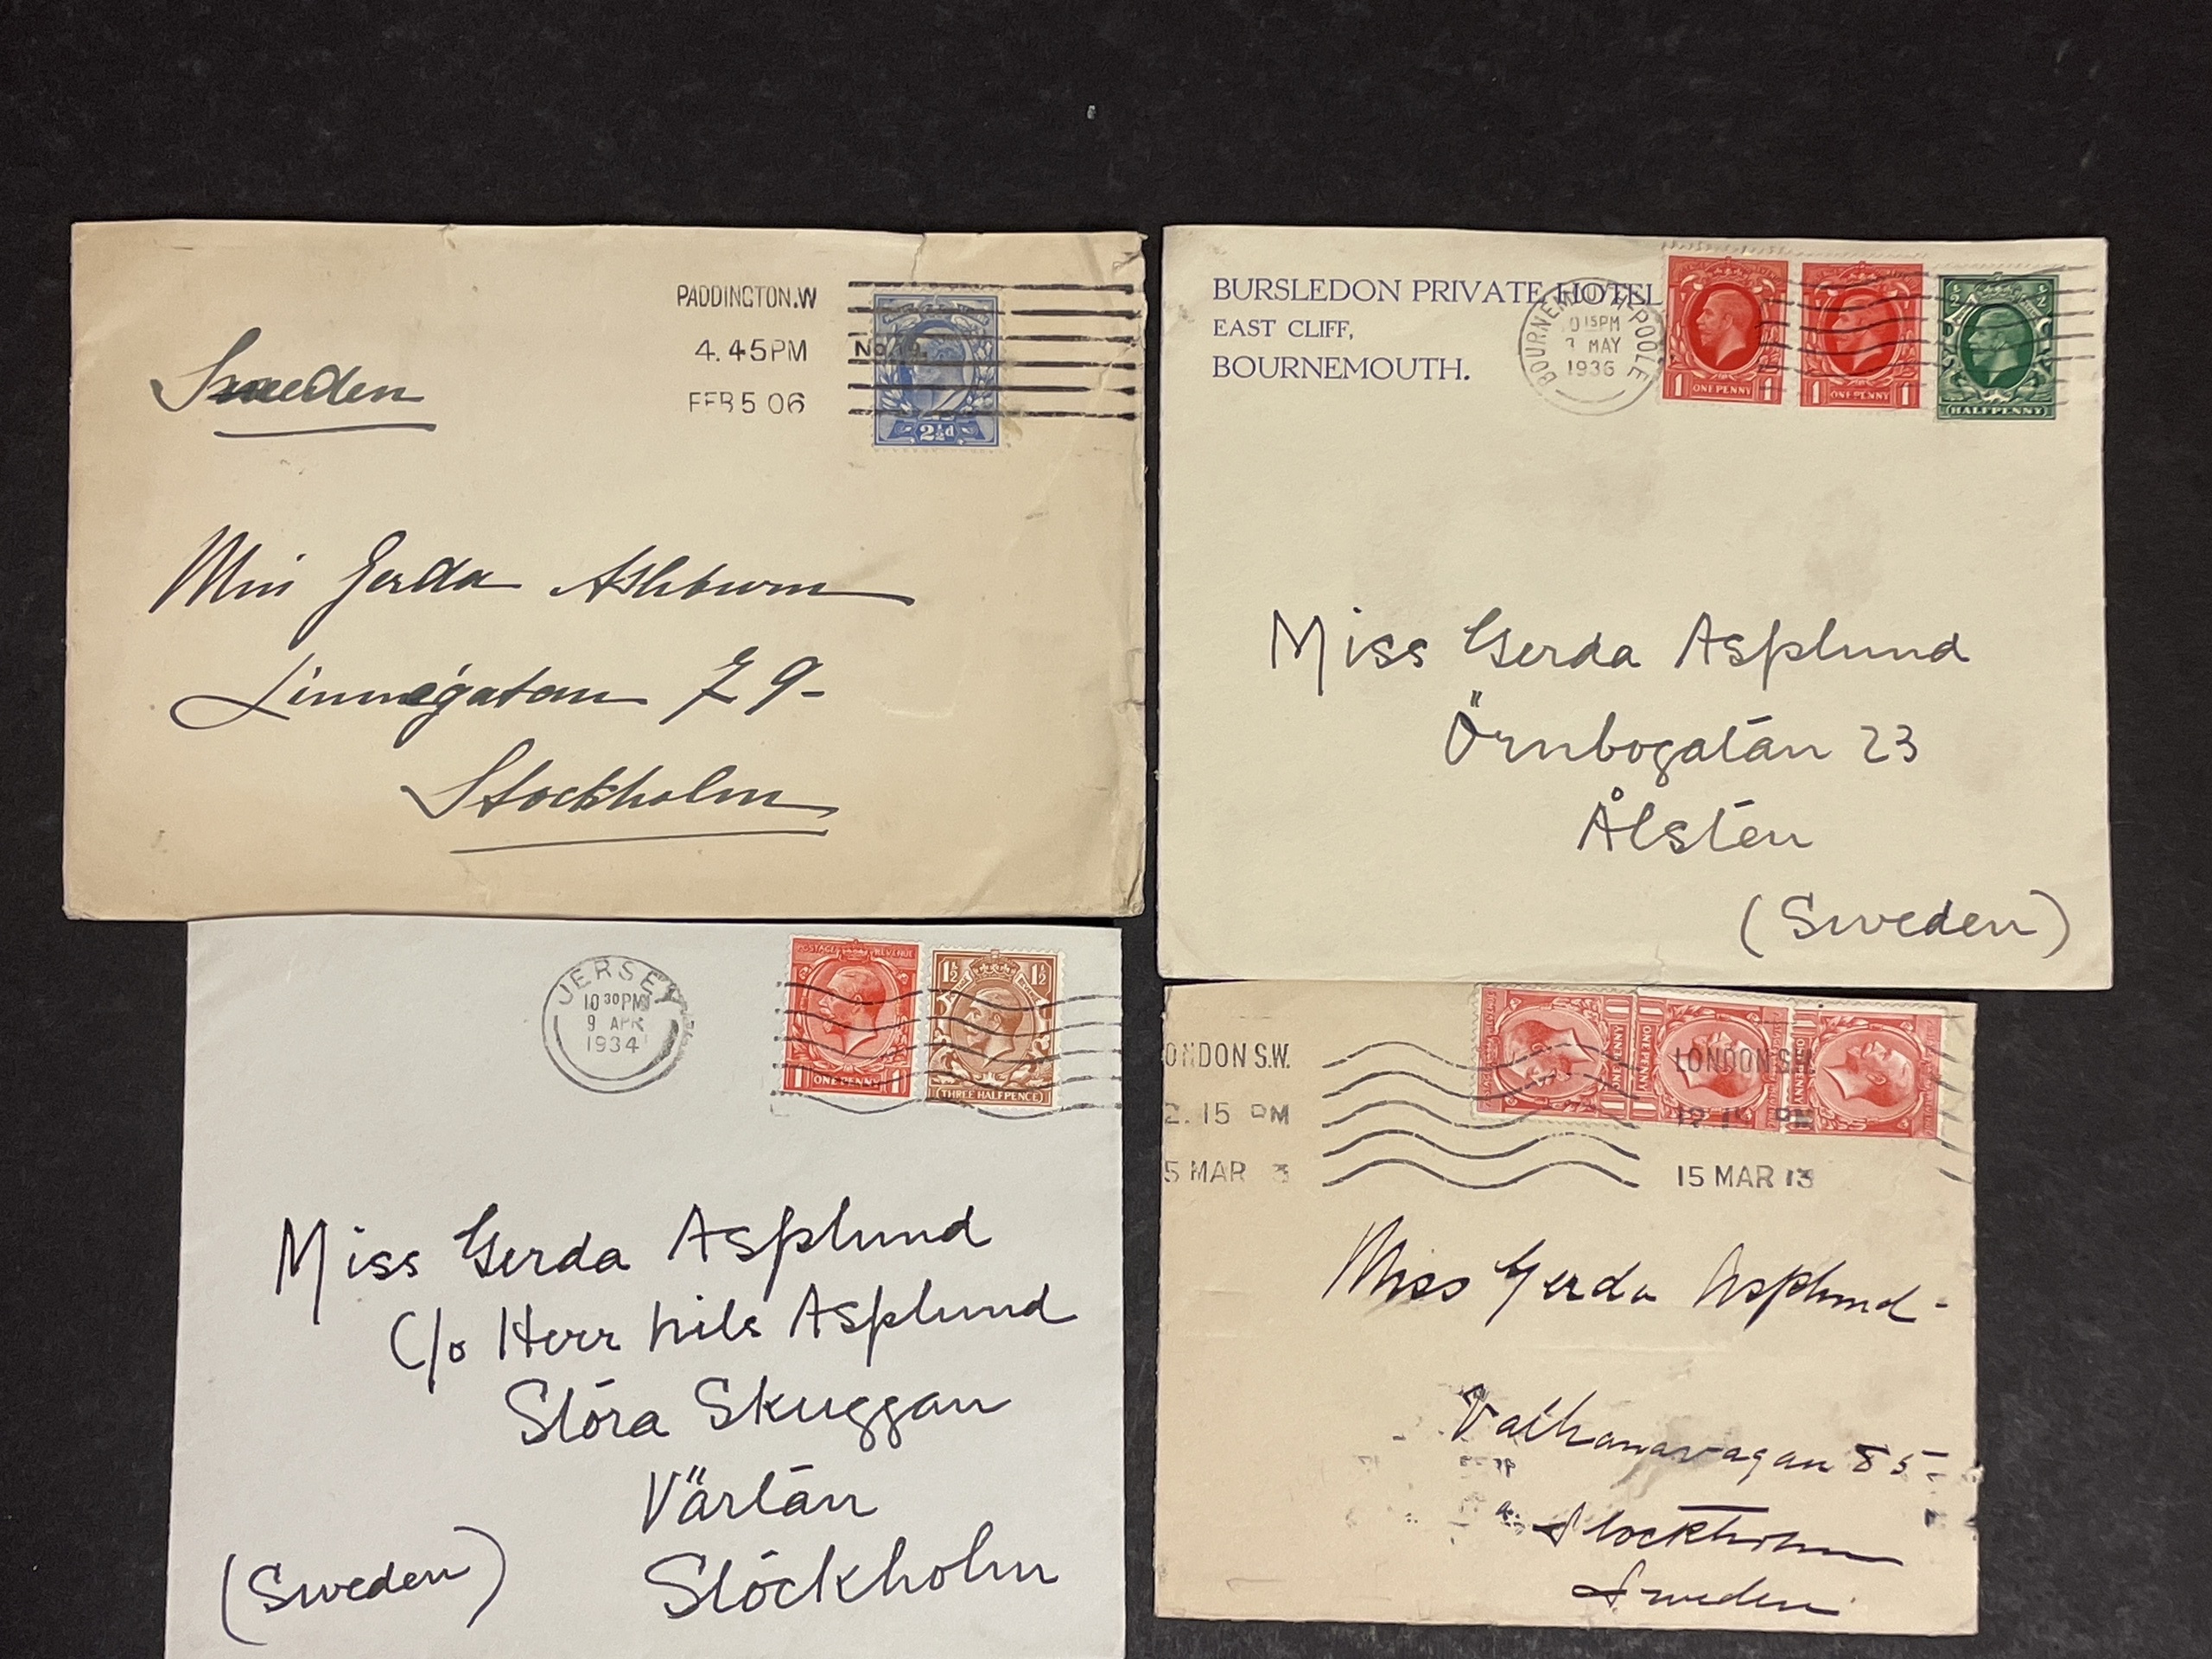 PADDINGTON.W
4.45PM
FEB 5 06
No.
2½d
Sweden
Miss Gerda Ashburn
Linnégatan 79-
Stockholm
BURSLEDON PRIVATE HOTEL
EAST CLIFF,
BOURNEMOUTH.
BOURNEMOUTH-POOLE
15PM
MAY
1936
1 ONE PENNY 1
1 ONE PENNY 1
½ ½
(HALFPENNY)
Miss Gerda Asplund
Örnbogatan 23
Ålsten
(Sweden)
JERSEY
10 30 PM
9 APR
1934
POSTAGE REVENUE
1 ONE PENNY 1
1½ 1½
(THREE HALFPENCE)
Miss Gerda Asplund
C/o Herr Nils Asplund
Stora Skuggan
Värtan
Stockholm
(Sweden)
ONDON S.W.
2.15 PM
5 MAR
LONDON S.W.
12.15 PM
15 MAR 13
ONE PENNY
ONE PENNY
Miss Gerda Asplund-
Valhallavagan 85-
Stockholm
Sweden